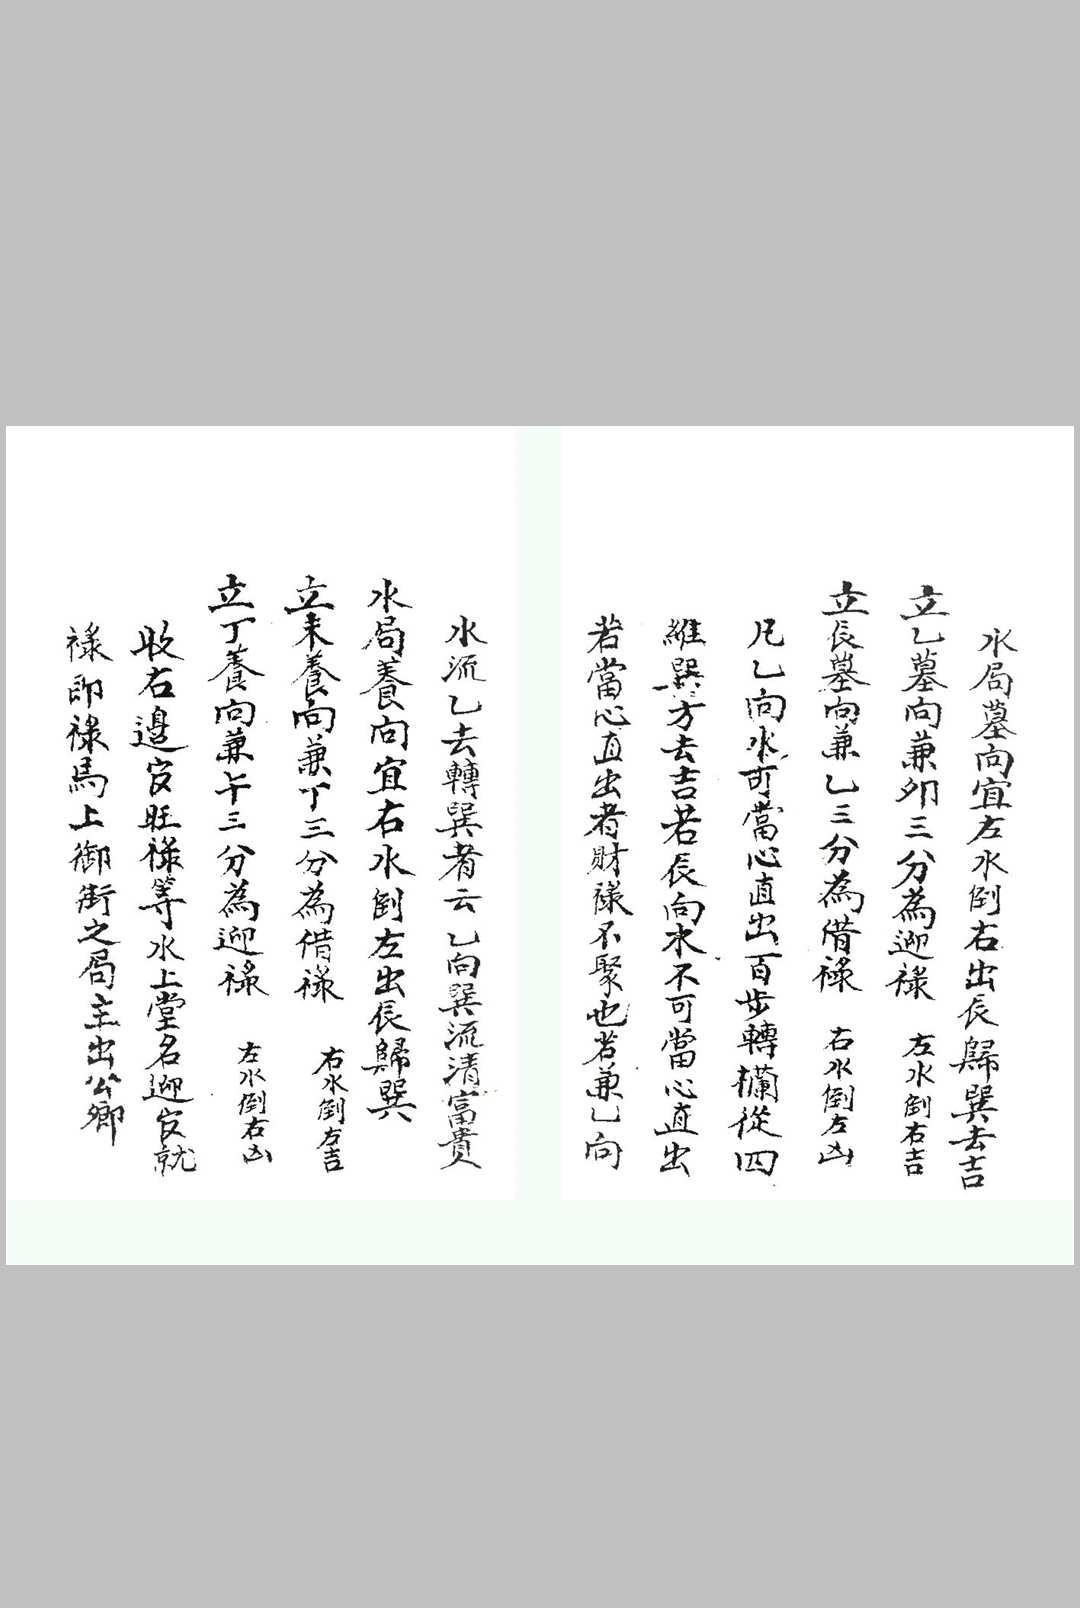 水局墓向宜左水倒右出辰歸巽去吉
立乙墓向兼卯三分為迎祿 左水倒右吉
立辰墓向兼乙三分為借祿 右水倒左凶
凡乙向水可當心直出百步轉欄從四
維巽方去吉若辰向水不可當心直出
若當心直出者財祿不聚也若兼乙向
水流乙去轉巽者云乙向巽流清富貴
水局養向宜右水倒左出辰歸巽
立未養向兼丁三分為借祿 右水倒左吉
立丁養向兼午三分為迎祿 左水倒右凶
收右邊官旺祿等水上堂名迎官就
祿即祿馬上御街之局主出公卿